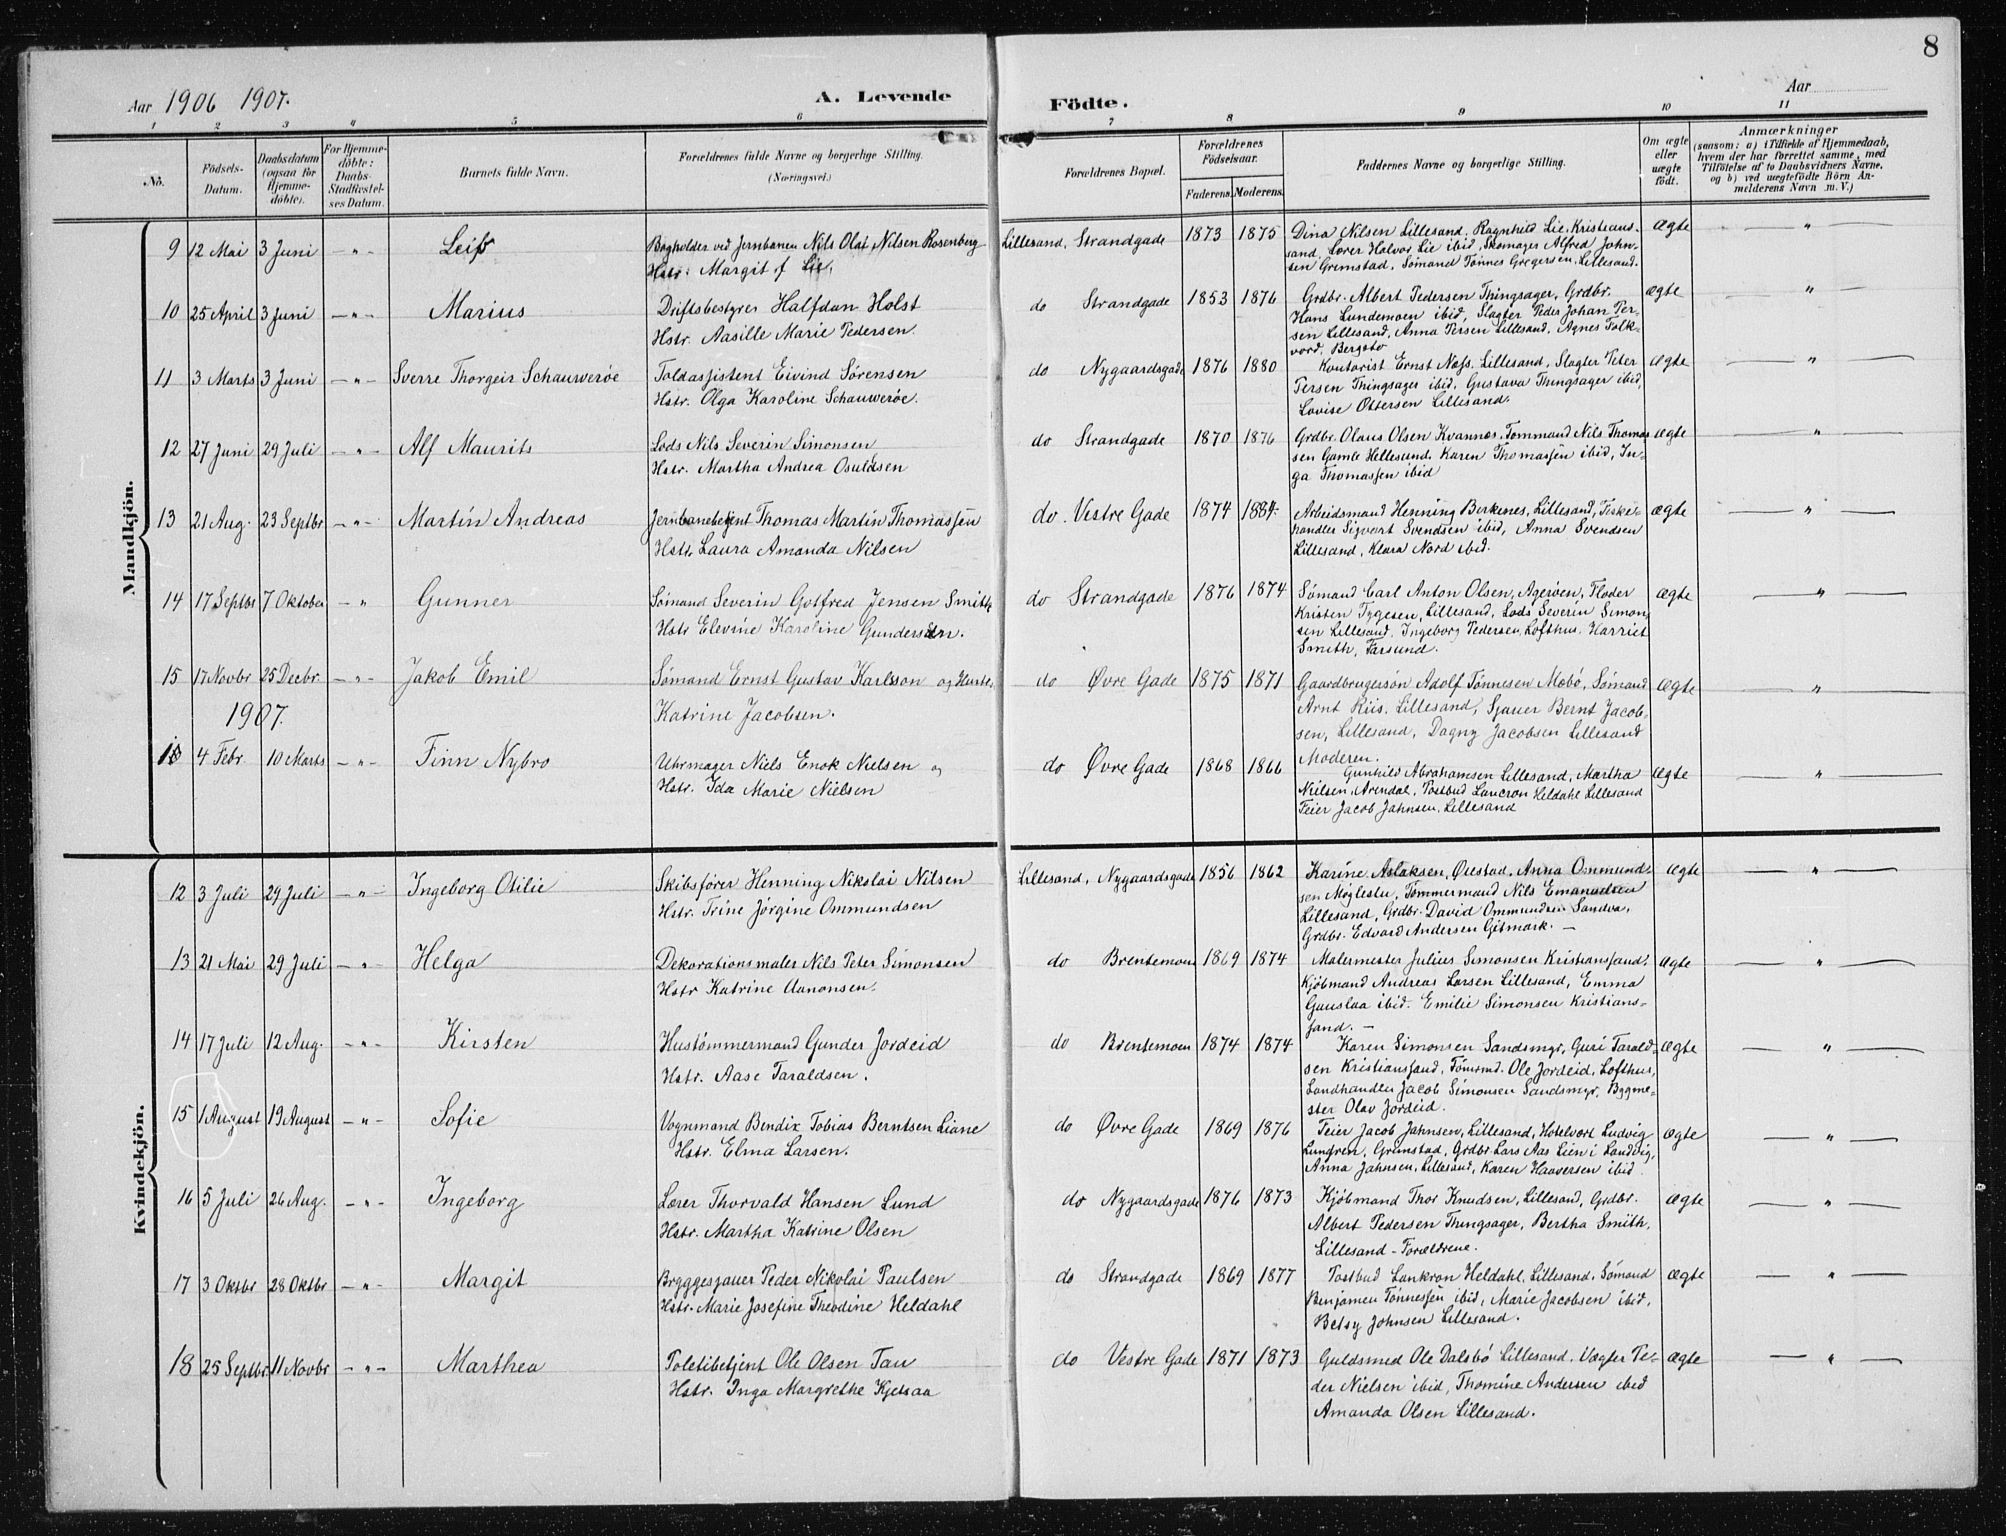 8
Aar 1906 1907. A. Levende Födte. Aar
1 2 3 4 5 6 7 8 9 10 11
No.
Födsels-Datum.
Daabsdatum (ogsaa for Hjemme-döbte).
For Hjemme-döbte: Daabs-Stadfæstel-ses Datum.
Barnets fulde Navn.
Forældrenes fulde Navne og borgerlige Stilling. (Næringsvei.)
Forældrenes Bopæl.
Forældrenes Födselsaar.
Faderens. Moderens.
Faddernes Navne og borgerlige Stilling.
Om ægte eller uægte födt.
Anmærkninger
(saasom: a) i Tilfælde af Hjemmedaab,
hvem der har forrettet samme, med
Tilföielse af to Daabsvidners Navne,
og b) ved uægtefödte Börn An-
melderens Navn m. V.)
Mandkjön.
9 12 Mai 3 Juni - " - Leif Bogholder ved Jernbanen Nils Olaf Nilsen Rosenberg
Hstr: Margit f Lie,
Lillesand, Strandgade 1873 1875 Dina Nilsen Lillesand, Ragnhild Lie Kristians-
sand, Lærer Halvor Lie ibid, Skomager Alfred John-
sen Grimstad, Sømand Tønnes Gregersen, Lillesand. Ægte "
10 25 April 3 Juni - " - Marius Driftsbestyrer Halfdan Holst
Hstr. Aasille Marie Pedersen.
do Strandgade 1853 1876 Grdbr. Albert Pedersen Thingsager, Grdbr.
Hans Lundemoen ibid, Slagter Peder Johan Per-
sen Lillesand, Anna Persen Lillesand, Agnes Folk-
vord, Bergsto Ægte "
11 3 Marts 3 Juni - " - Sverre Thorgeir Schauwerøe Toldassistent Eivind Sørensen
Hstr. Olga Karoline Schauwerøe.
do Nygaardsgade 1876 1880 Kontorist Ernst Næss, Lillesand, Slagter Peter
Persen Thingsager ibid, Gustava Thingsager ibid,
Lovise Ottersen Lillesand. Ægte "
12 27 Juni 29 Juli - " - Alf Maurits Lods Nils Severin Simonsen
Hstr. Martha Andrea Osuldsen
do Strandgade 1870 1876 Grdbr. Olaus Olsen Kvannes, Tommand Nils Thomas-
sen Gamle Hellesund, Karen Thomassen ibid, In-
ga Thomassen ibid Ægte "
13 21 Aug. 23 Septbr - " - Martin Andreas Jernbanebetjent Thomas Martin Thomassen
Hstr. Laura Amanda Nilsen
do. Vestre Gade 1874 1884. Arbeidsmand Henning Birkenes, Lillesand, Fiske-
handler Sigvart Svendsen ibid, Anna Svendsen
Lillesand, Klara Nord ibid. Ægte "
14 17 Septbr 7 Oktober - " Gunner Sømand Severin Gotfred Jensen Smith,
Hstr Elevine Karoline Gundersen.
do Strandgade 1876 1874 Sømand Carl Anton Olsen, Agerøen, Floder
Kristen Tygesen, Lillesand, Lods Severin Simon-
sen Lillesand, Ingeborg Pedersen, Lofthus, Harriet
Smith, Farsund. Ægte "
15 17 Novbr 25 Decbr. - " - Jakob Emil Sømand Ernst Gustav Karlsson og Hustr.
Katrine Jacobsen.
do Øvre Gade 1875 1871 Gaardbrugersøn Adolf Tønnesen Møbø, Sømand
Arnt Riis, Lillesand, Sjauer Bernt Jacob-
sen, Lillesand, Dagny Jacobsen Lillesand
Moderen. Ægte "
1907.
4 Febr. 10 Marts - " - Finn Nybro Uhrmager Niels Enok Nielsen og
Hstr. Ida Marie Nielsen
do Øvre Gade 1868 1866 Gunhild Abrahamsen Lillesand, Martha
Nielsen, Arendal, Postbud Lancron Heldahl Lillesand
Feier Jacob Jahnsen, Lillesand Ægte "
Kvindekjön.
12 3 Juli 29 Juli - " - Ingeborg Otilie Skibsfører Henning Nikolai Nilsen
Hstr. Trine Jørgine Ommundsen
Lillesand, Nygaardsgade 1856 1862 Karine Aslaksen, Øiestad, Anna Ommund-
sen Møglestu, Tømmermand Nils Emanuelsen
Lillesand, Grdbr. David Ommundsen Sandva,
Grdbr. Edvard Andersen Gitmark. - Ægte "
13 21 Mai 29 Juli - " - Helga Dekorationsmaler Nils Peter Simonsen
Hstr Katrine Aanonsen.
do Brentemoen 1869 1874 Malermester Julius Simonsen Kristianssand,
Kjøbmand Andreas Larsen Lillesand, Emma
Gauslaa ibid. Emilie Simonsen Kristians-
sand. - Ægte "
14 17 Juli 12 Aug. - " - Kirsten Hustømmermand Gunder Jordeid
Hstr. Aase Taraldsen.
do Brentemoen 1874 1874 Karen Simonsen Sandsmyr, Guri Tarald-
sen Kristianssand, Tømrmd. Ole Jordeid, Lofthus,
Landhandler Jacob Simonsen Sandsmyr, Bygme-
ster Olav Jordeid. Ægte "
15 1 August 19 August - " - Sofie Vognmand Bendix Tobias Berntsen Liane
Hstr. Elma Larsen.
do Øvre Gade 1869 1876 Feier Jacob Jahnsen, Lillesand, Hotelvært Ludvig
Lungren, Grimstad, Grdbr Lars Aas Lien i Landvig,
Anna Jahnsen, Lillesand, Karen Haaversen ibid Ægte "
16 5 Juli 26 Aug. - " - Ingeborg Lærer Thorvald Hansen Lund
Hstr. Martha Katrine Olsen
do Nygaardsgade 1876 1873 Kjøbmand Thor Knudsen, Lillesand, Grdbr.
Albert Pedersen Thingsager, Bertha Smith,
Lillesand - Forældrene. Ægte "
17 3 Oktbr 28 Oktbr - " - Margit Bryggesjauer Peder Nikolai Paulsen
Hstr. Marie Josefine Theodine Heldahl
do Strandgade 1869 1877 Postbud Lankron Heldahl, Lillesand, Sømand
Benjamen Tønnessen ibid, Marie Jacobsen ibid,
Betsy Johnsen Lillesand. Ægte "
18 25 Septbr. 11 Novbr - " - Marthea Politibetjent Ole Olsen Tau
Hstr. Inga Margrethe Kjetsaa
do Vestre Gade 1871 1873 Guldsmed Ole Dalsbø Lillesand, Vægter Pe-
der Nielsen ibid, Thomine Andersen ibid
Amanda Olsen Lillesand. Ægte "